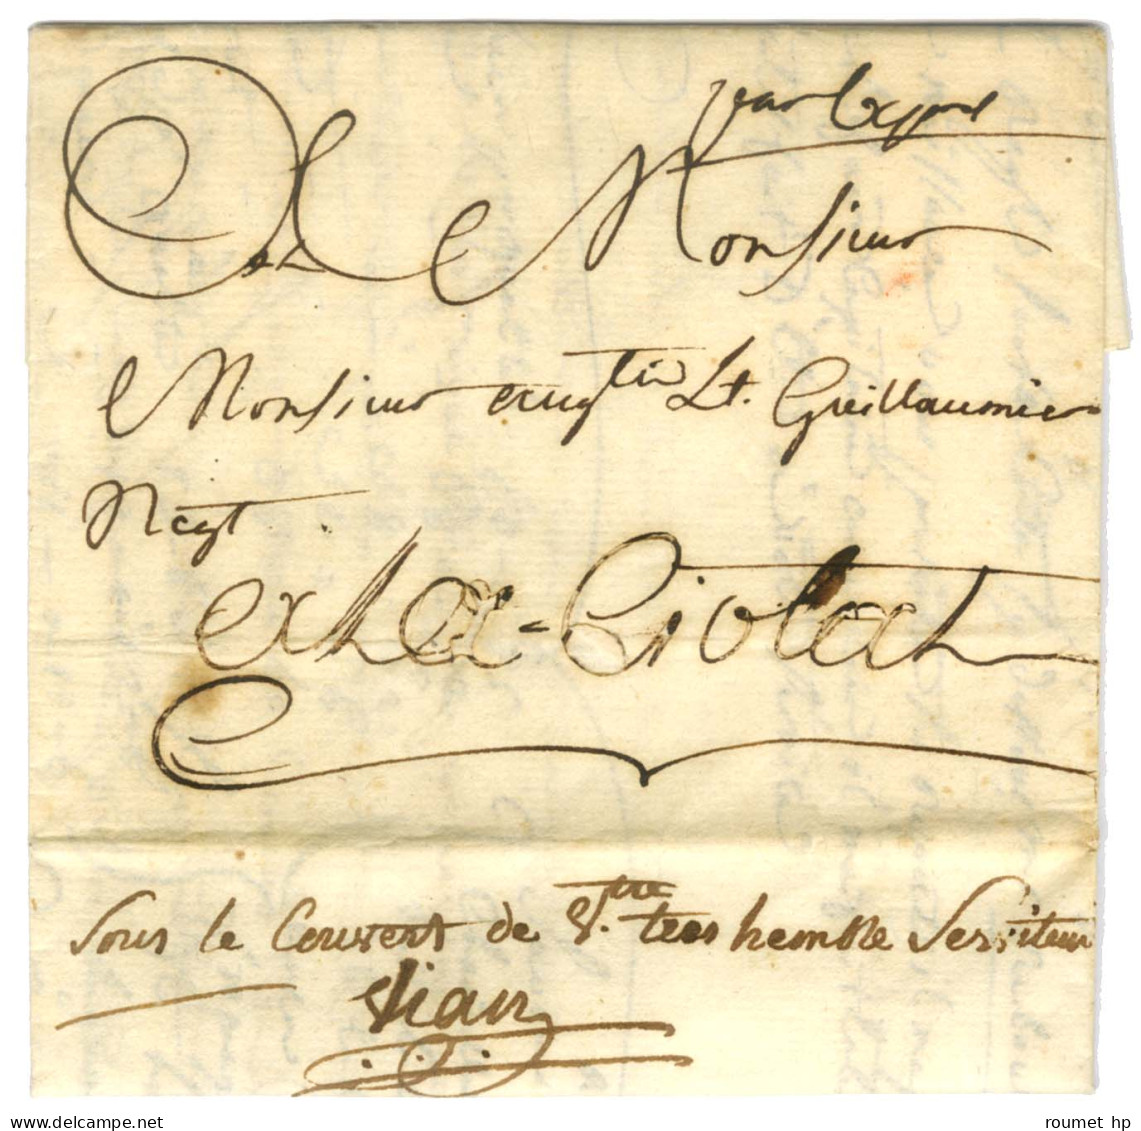 par Expres
A Monsieur
Monsieur augtin Lt. Guillaumier
Negt
A La Ciotat
Sous le Couvert de tres humble Serviteur
Vian
roumet hp